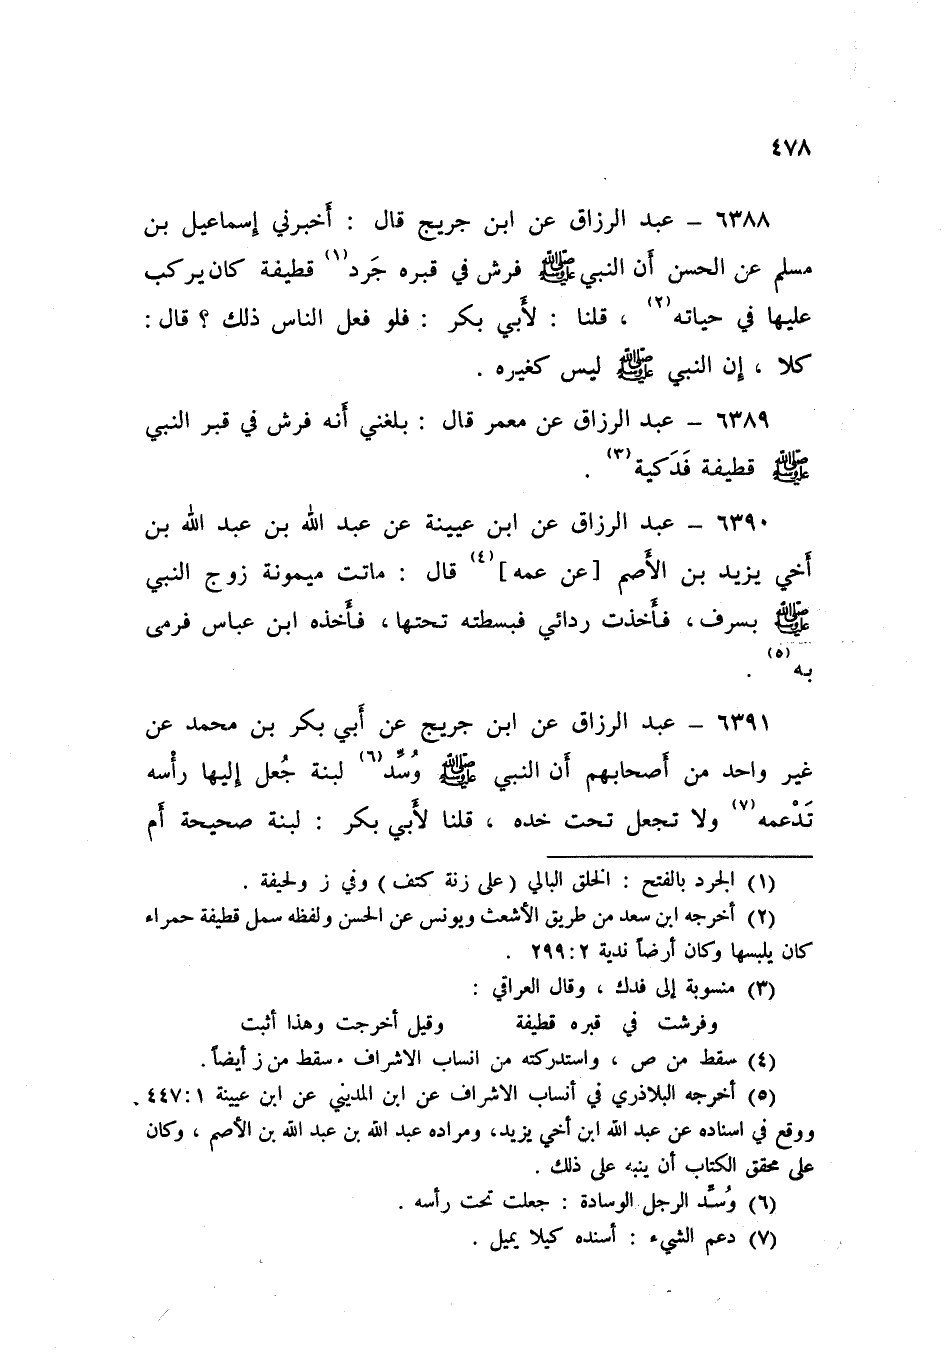 ٤٧٨
٦٣٨٨ - عبد الرزاق عن ابن جريج قال : أخبرني إسماعيل بن
مسلم عن الحسن أن النبي ﷺ فرش في قبره جَرد(١) قطيفة كان يركب
عليها في حياته(٢) ، قلنا : لأبي بكر : فلو فعل الناس ذلك ؟ قال :
كلا ، إن النبي ﷺ ليس كغيره .
٦٣٨٩ - عبد الرزاق عن معمر قال : بلغني أنه فرش في قبر النبي
ﷺ قطيفة فَدَكية(٣) .
٦٣٩٠ - عبد الرزاق عن ابن عيينة عن عبد الله بن عبد الله بن
أخي يزيد بن الأصم [عن عمه](٤) قال : ماتت ميمونة زوج النبي
ﷺ بسرف، فأخذت ردائي فبسطته تحتها، فأخذه ابن عباس فرمى
به(٥) .
٦٣٩١ - عبد الرزاق عن ابن جريج عن أبي بكر بن محمد عن
غير واحد من أصحابهم أن النبي ﷺ وُسِّد(٦) لبنة جُعل إليها رأسه
تَدْعمه(٧) ولا تجعل تحت خده ، قلنا لأبي بكر : لبنة صحيحة أم
(١) الجرد بالفتح : الخلق البالي (على زنة كتف) وفي ز ولحيفة .
(٢) أخرجه ابن سعد من طريق الأشعث ويونس عن الحسن ولفظه سمل قطيفة حمراء
كان يلبسها وكان أرضاً ندية ٢٩٩:٢ .
(٣) منسوبة إلى فدك ، وقال العراقي :
وفرشت في قبره قطيفة وقيل أخرجت وهذا أثبت
(٤) سقط من ص ، واستدركته من انساب الاشراف . سقط من ز أيضاً.
(٥) أخرجه البلاذري في أنساب الاشراف عن ابن المديني عن ابن عيينة ٤٤٧:١ .
ووقع في اسناده عن عبد الله ابن أخي يزيد، ومراده عبد الله بن عبد الله بن الأصم ، وكان
على محقق الكتاب أن ينبه على ذلك .
(٦) وُسِّد الرجل الوسادة : جعلت تحت رأسه .
(٧) دعم الشيء : أسنده كيلا يميل .